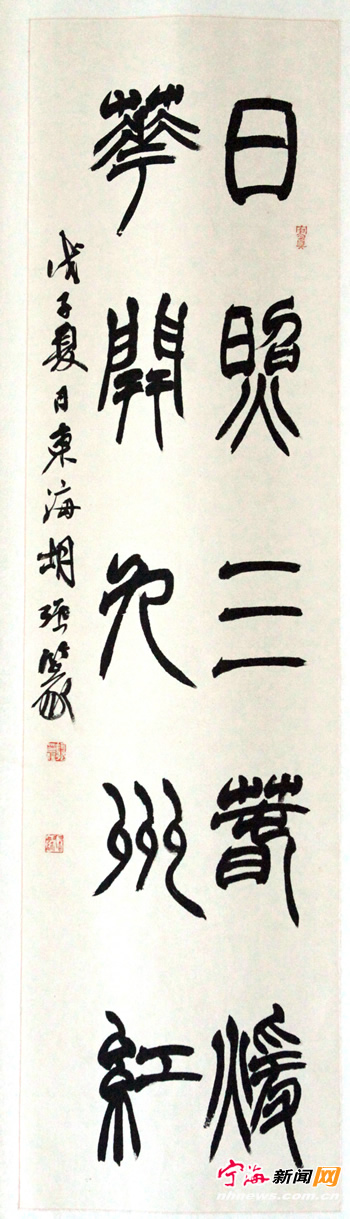 日照三春暖
華開九州紅
戊子夏日東海胡强篆
宁海新闻网
nhnews.com.cn